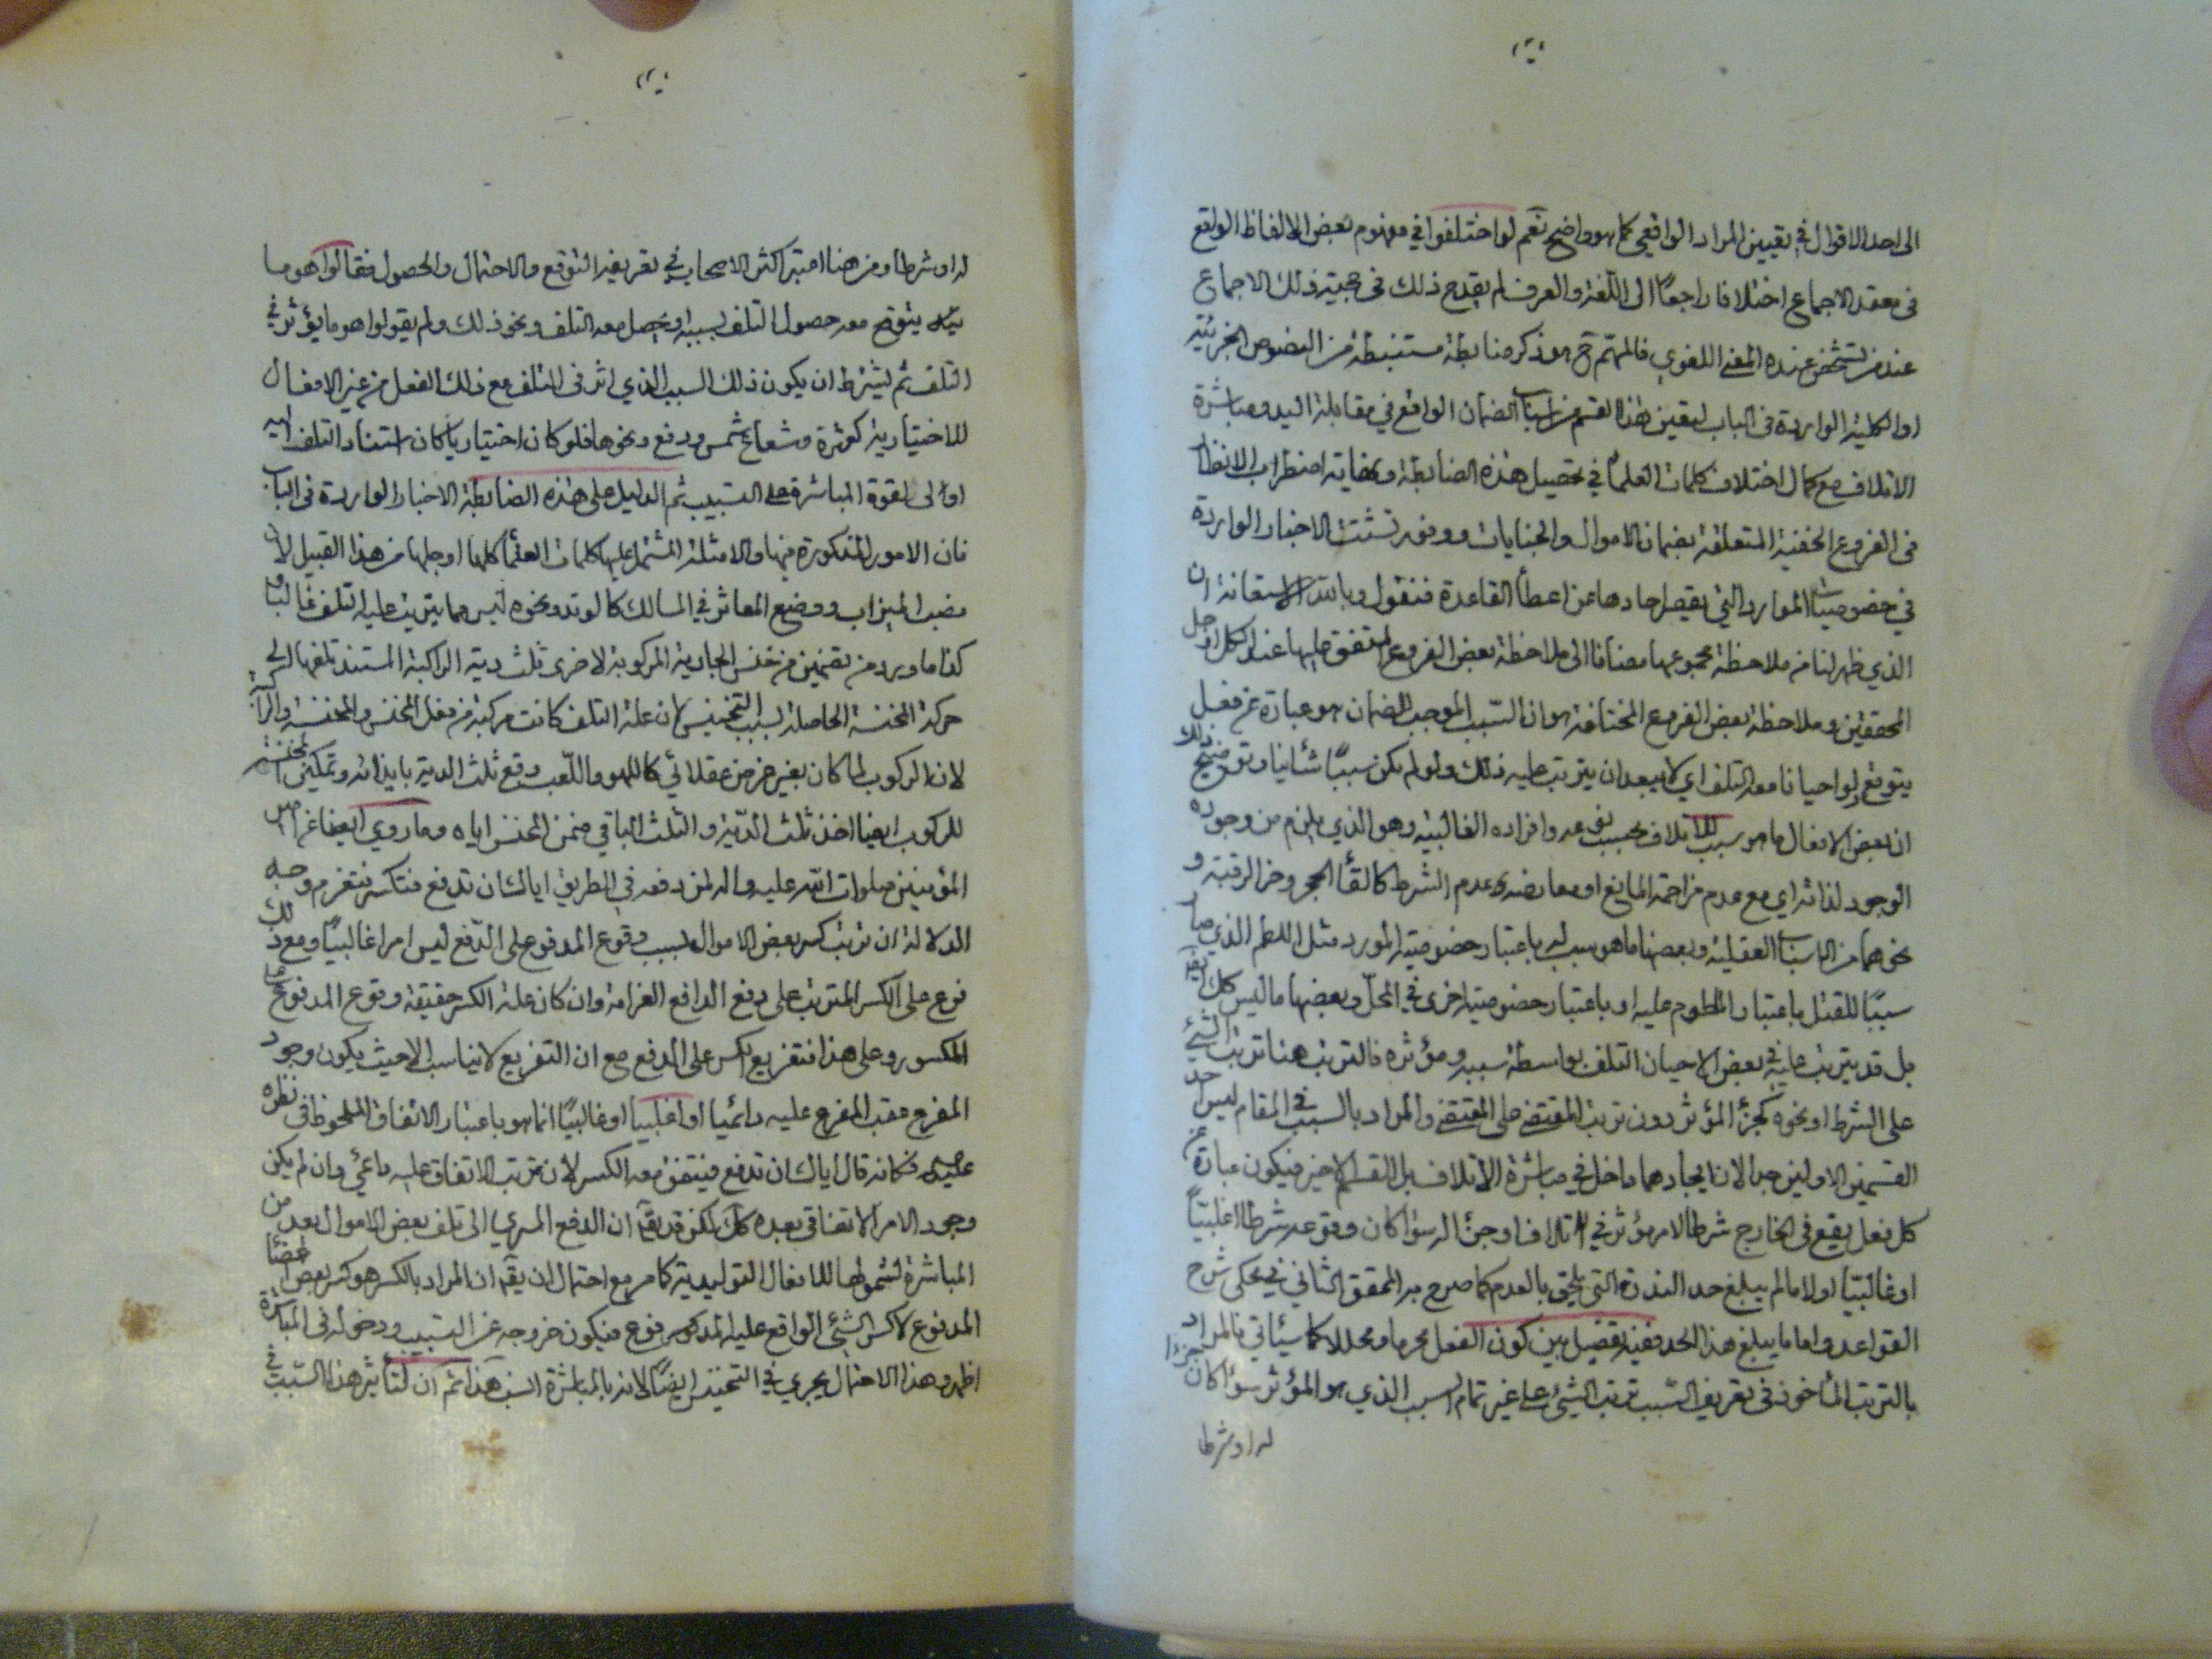 الى احد الاقوال في تعيين المراد الواقعي كما هو واضح نعم لو اختلفوا في مفهوم بعض الالفاظ الواقع
في معقد الاجماع اختلافا راجعا الى اللغة والعرف لم يقدح ذلك في حجية ذلك الاجماع
عند من تشخص عنده المعنى اللغوي فالمهم ح هو ذكر ضابطة مستنبطة من النصوص الجزئية
او الكلية الواردة في الباب لتعيين هذا القسم من اسباب الضمان الواقع في مقابلة اليد ومباشرة
الاتلاف مع كمال اختلاف كلمات العلماء في تحصيل هذه الضابطة و اضطراب الانظار
في الفروع الخفية المتعلقة بضمان الاموال والجنايات و تشتت الاخبار الواردة
في خصوصيات الموارد التي يقصر احادها عن اعطاء القاعدة فنقول وبالله الاستعانة ان
الذي ظهر لنا من ملاحظة مجموعها مضافا الى ملاحظة بعض الفروع المتفق عليها عند الكل او جل
المحققين وملاحظة بعض الفروع المختلفة هو ان السبب الموجب للضمان هو عبارة عن فعل
يتوقع ولو احيانا معه التلف اي لا يبعد ان يترتب عليه ذلك ولو لم يكن سببا شأنيا وتوضيح ذلك
ان بعض الافعال ما هو سبب للاتلاف بحسب نوعه وافراده الغالبية وهو الذي يلزم من وجوده
الوجود لذاته اي مع عدم مزاحمة المانع او معارضة عدم الشرط كالقاء الحجر وحز الرقبة و
نحوهما من الاسباب العقلية وبعضها ما هو سبب له باعتبار خصوصية المورد مثل اللطم الذي صار
سببا للقتل باعتبار الملطوم عليه او باعتبار خصوصية اخرى في المحل وبعضها ما ليس كل
بل قد يترتب عليه في بعض الاحيان التلف بواسطة سببه ومؤثره فالترتب هنا ترتب الشئ
على الشرط او نحوه كجزء المؤثر دون ترتب المقتضى على المقتضي والمراد بالسبب في المقام ليس احد
القسمين الاولين جدا لان ايجادهما داخل في مباشرة الاتلاف بل القسم الاخير فيكون عبارة عن
كل فعل يقع في الخارج شرطا لامر مؤثر في الاتلاف او جزء له سواء كان وقوعه شرطا اغلبيا
او غالبيا او لا ما لم يبلغ حد الندرة التي يلحق بالعدم كما صرح به المحقق الثاني في محكي شرح
القواعد واما ما يبلغ هذا الحد ففيه تفصيل بين كون الفعل محرما ومحللا كما سيأتي فالمراد
بالترتب المأخوذ في تعريف السبب ترتب الشئ على غير تمام السبب الذي هو المؤثر سواء كان جزءا
له او شرطا
له او شرطا ومن هنا اعتبر اكثر الاصحاب في تعريفه التوقع والاحتمال والحصول فقالوا هو ما
يتوقع معه حصول التلف بسببه او يحصل معه التلف ونحو ذلك ولم يقولوا هو ما يؤثر في
التلف ثم يشترط ان يكون ذلك السبب الذي اثر في التلف مع ذلك الفعل من غير الافعال
الاختيارية كعثرة وشعاع شمس ودفع ونحوها فلو كان اختياريا كان استناد التلف اليه
اولى لقوة المباشرة على التسبيب ثم الدليل على هذه الضابطة الاخبار الواردة في الباب
فان الامور المذكورة فيها والامثلة المشتمل عليها كلمات العلماء كلها او جلها من هذا القبيل لان
نصب الميزاب ووضع المعاثر في المسالك كالوتد ونحوه ليس مما يترتب عليه التلف غالبا و
كذا ما ورد من تضمين من نخس الجارية المركوبة لاخرى ثلث دية الراكبة المستند تلفها الى
حركة المنخسة الحاصلة بسبب التنخيس لان علة التلف كانت مركبة من فعل المنخس والمنخسة والراكبة
لان الركوب لما كان بغير غرض عقلائي كاللهو واللعب وقع ثلث الدية بايذائه وتمكين المنخسة
للركوب ايضا اخذ ثلث الدية والثلث الباقي ضمن المنخس اياه وما روي ايضا عن امير
المؤمنين صلوات الله عليه واله لمن دفعه في الطريق اياك ان تدفع فتكسر فتغرم وجه
الدلالة ان ترتب كسر بعض الاموال بسبب وقوع المدفوع على الدفع ليس امرا غالبيا ومع ذلك
فرع على الكسر المترتب على دفع الدافع الغرامة وان كان علة الكسر حقيقة وقوع المدفوع على
المكسور وعلى هذا فتفريع الكسر على الدفع مع ان التفريع لا يناسب الا حيث يكون وجود
المفرع عقب المفرع عليه دائميا او اغلبيا او غالبيا انما هو باعتبار الاتفاق الملحوظ في نظره
عليه السلام فكانه قال اياك ان تدفع فيتفق معه الكسر لان ترتب الاتفاق عليه دائمي وان لم يكن
وجود الامر الاتفاقي بعده كل لكن قد يق ان الدفع المسري الى تلف بعض الاموال يعد من
المباشرة لشمولها للافعال التوليدية كما مر مع احتمال ان يق ان المراد بالكسر هو كسر بعض اعضاء
المدفوع لا كسر الشئ الواقع عليه المدفوع فيكون خروجه عن التسبيب ودخوله في المباشرة
اظهر وهذا الاحتمال يجري في التنخيس ايضا لانه بالمباشرة انسب هذا ثم ان لتأثير هذا السبب في